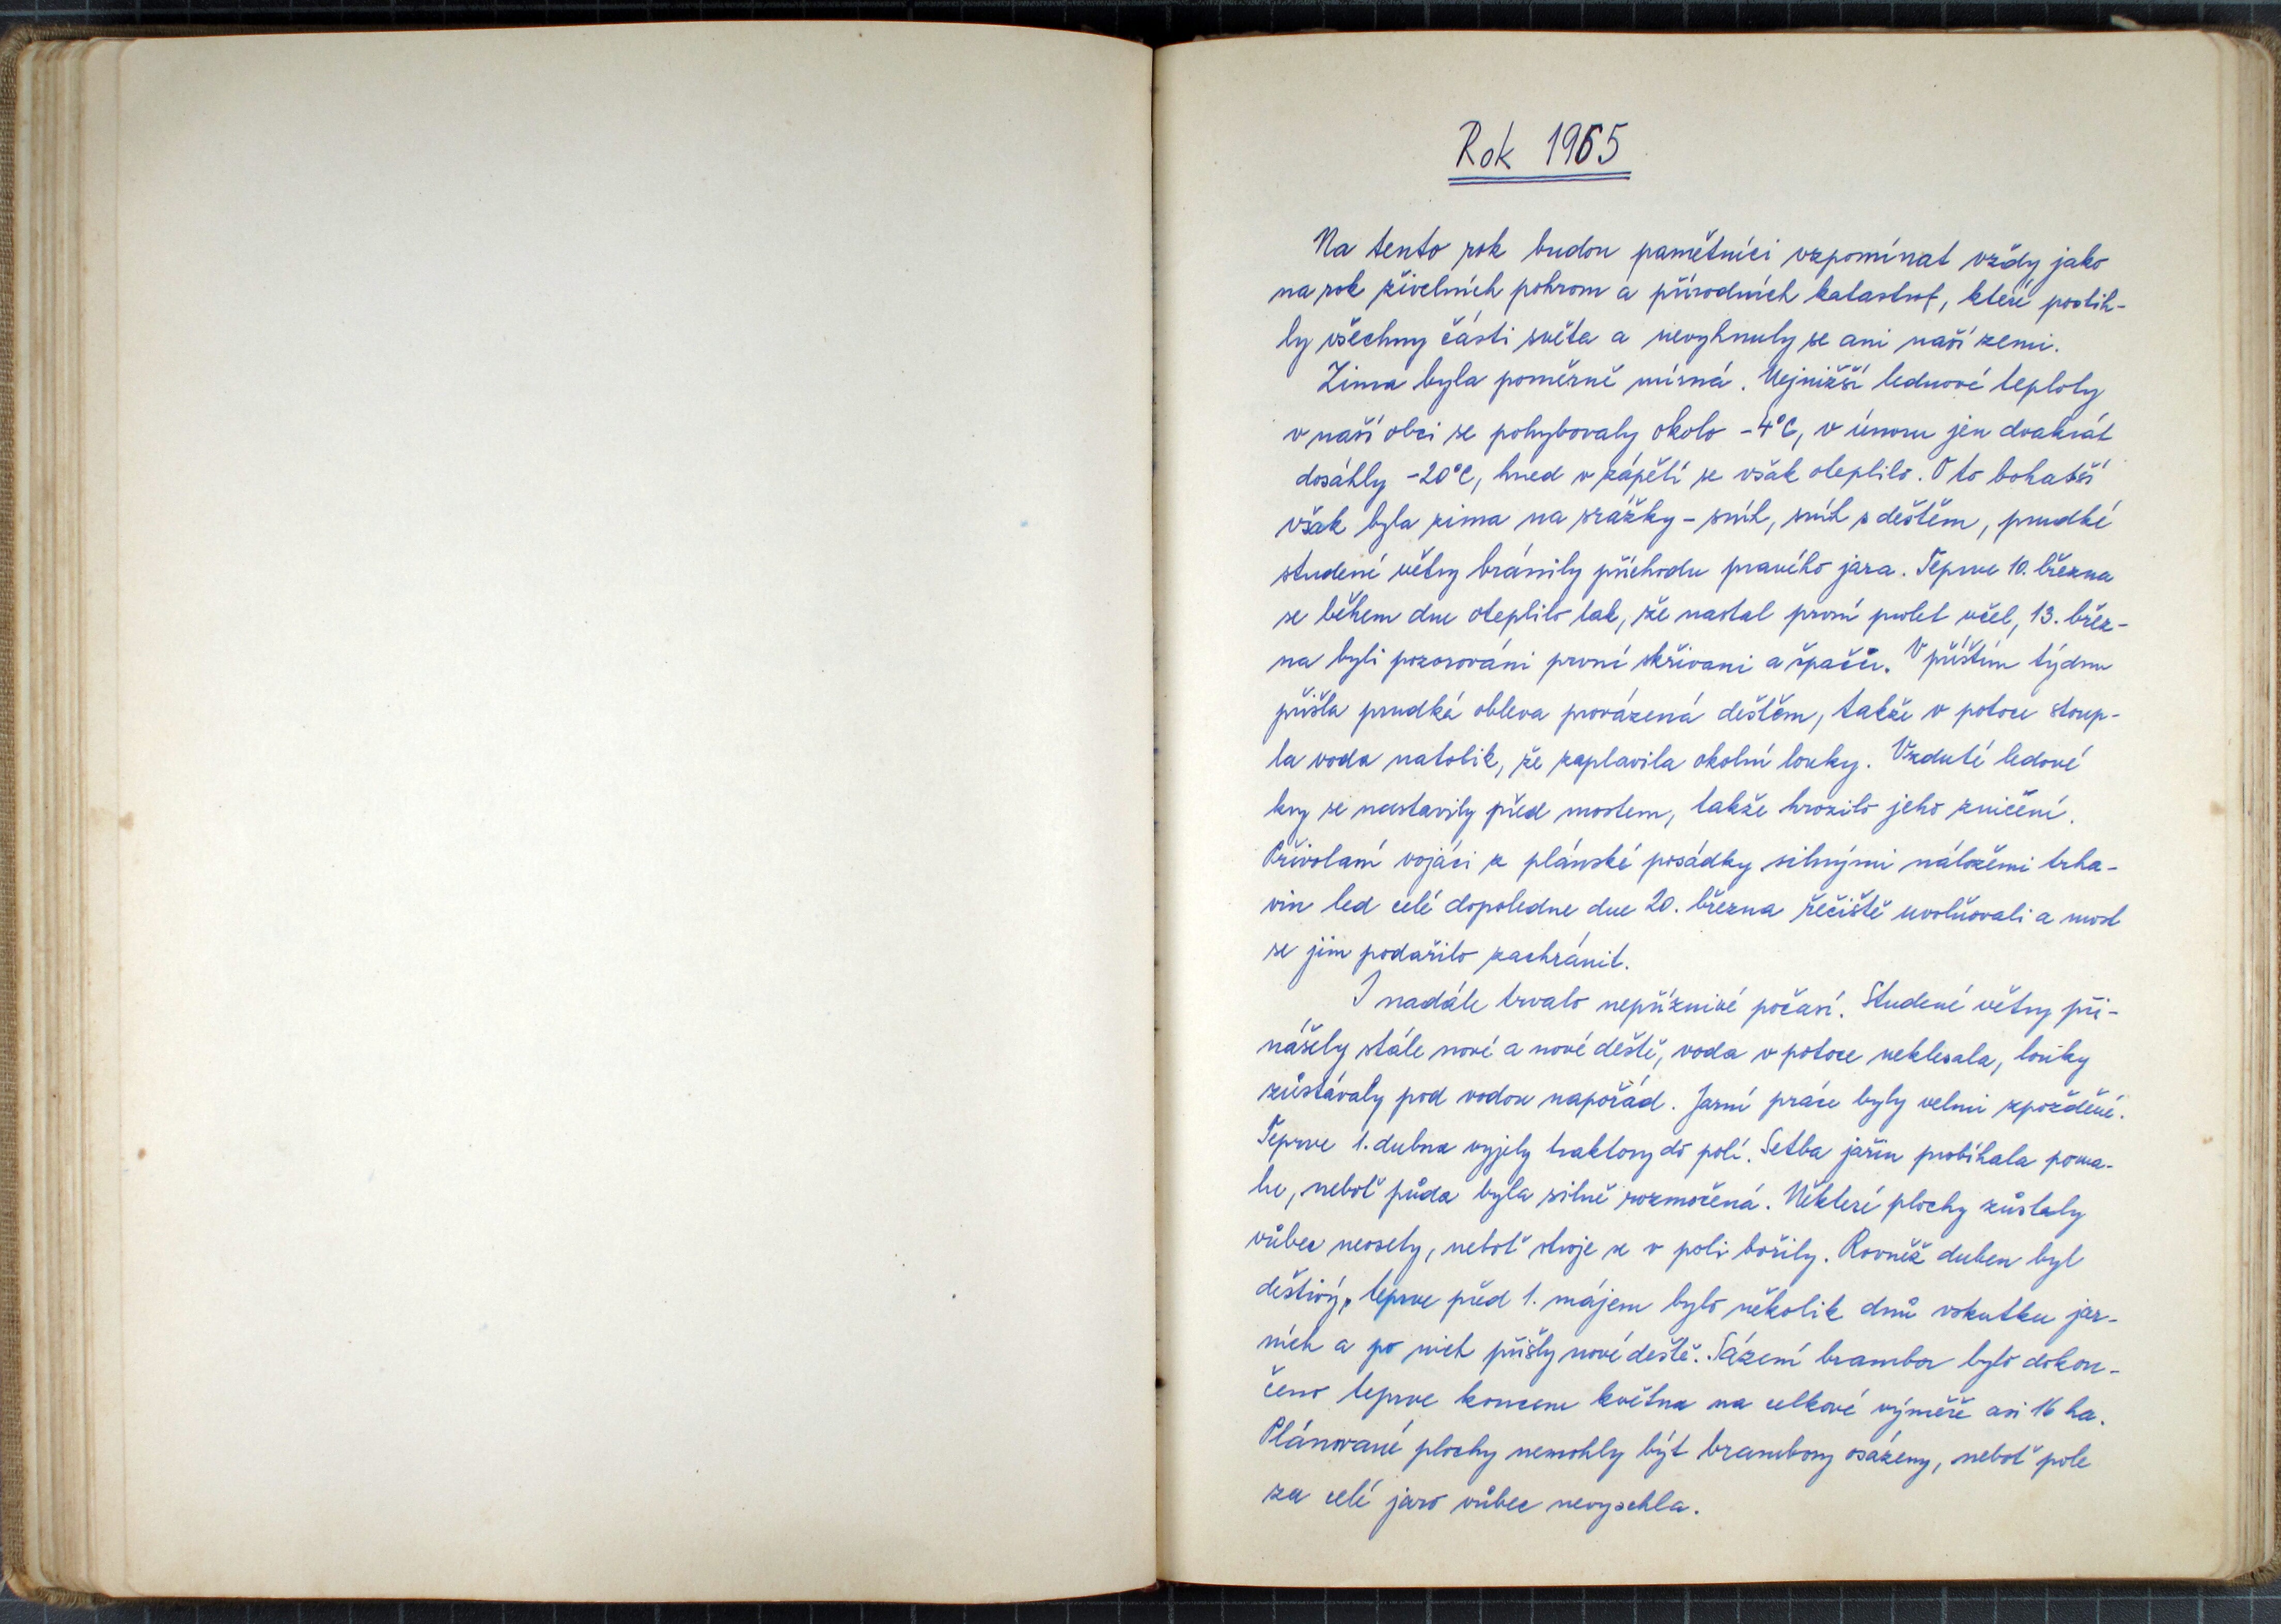 Rok 1965
Na tento rok budou pamětníci vzpomínat vždy jako
na rok živelních pohrom a přírodních katastrof, které postih-
ly všechny části světa a nevyhnuly se ani naší zemi.
Zima byla poměrně mírná. Nejnižší lednové teploty
v naší obci se pohybovaly okolo -4°C, v únoru jen dvakrát
dosáhly -20°C, hned v zápětí se však oteplilo. O to bohatší
však byla zima na srážky - sníh, sníh s deštěm, prudké
studené větry bránily příchodu pravého jara. Teprve 10. března
se během dne oteplilo tak, že nastal první prolet včel, 13. břez-
na byli pozorováni první skřivani a špačci. V příštím týdnu
přišla prudká obleva provázená deštěm, takže v potoce stoup-
la voda natolik, že zaplavila okolní louky. Vzduté ledové
kry se nastavily před mostem, takže hrozilo jeho zničení.
Přivolaní vojáci z plánské posádky silnými náložemi trha-
vin led celé dopoledne dne 20. března řečiště uvolňovali a most
se jim podařilo zachránit.
I nadále trvalo nepříznivé počasí. Studené větry při-
nášely stále nové a nové deště, voda v potoce neklesala, louky
zůstávaly pod vodou napořád. Jarní práce byly velmi zpožděné.
Teprve 1. dubna vyjely traktory do polí. Setba jařin probíhala poma-
lu, neboť půda byla silně rozmočená. Některé plochy zůstaly
vůbec neosety, neboť stroje se v poli bořily. Rovněž duben byl
deštivý, teprve před 1. májem bylo několik dnů vskutku jar-
ních a po nich přišly nové deště. Sázení brambor bylo dokon-
čeno teprve koncem května na celkové výměře asi 16 ha.
Plánované plochy nemohly být brambory osázeny, neboť pole
za celé jaro vůbec nevyschla.